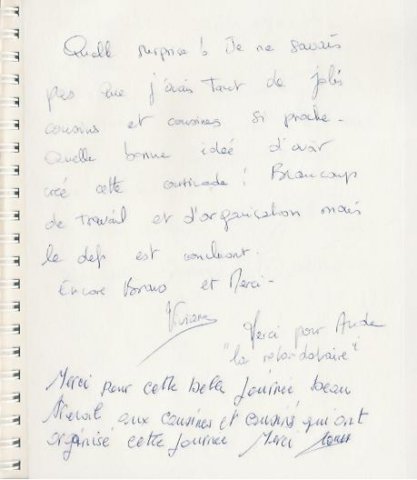 Quelle surprise ! Je ne savais
pas que j'avais tant de jolis
cousins et cousines si proche -
Quelle bonne idée d'avoir
créé cette cousinade ! Beaucoup
de travail et d'organisation mais
le defi est concluant.
Encore Bravo et Merci -
Viviane
Merci pour Aude
"la retardataire"
Merci pour cette belle journée beau
travail aux cousines et cousins qui ont
organisé cette journée Merci